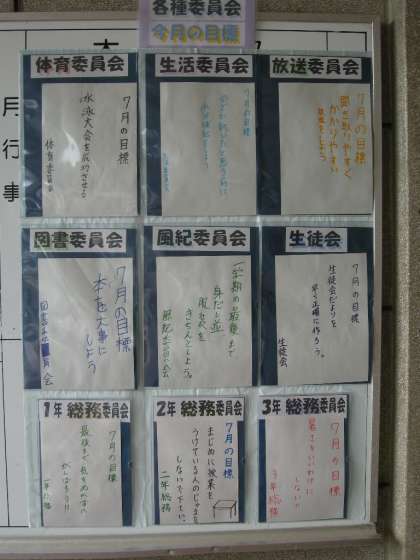 各種委員会
今月の目標
月行事
体育委員会
7月の目標
水泳大会を成功させる
体育委員会
生活委員会
7月の目標
放送委員会
7月の目標
聞き取りやすく
わかりやすい
図書委員会
7月の目標
本を大事に
しよう
図書委員会
風紀委員会
一学期の最後まで
身だし並
服装を
きちんとしよう。
風紀委員会
生徒会
7月の目標
生徒会だよりを
早く正確に作ろう。
生徒会
1年 総務委員会
7月の目標
最後まで気をぬかずに
がんばろう!!
一年総務
2年 総務委員会
7月の目標
まじめに授業を
うけている人のじゃまを
しないで下さい。
二年総務
3年 総務委員会
7月の目標
暑さをいいわけに
しない!!
3年総務